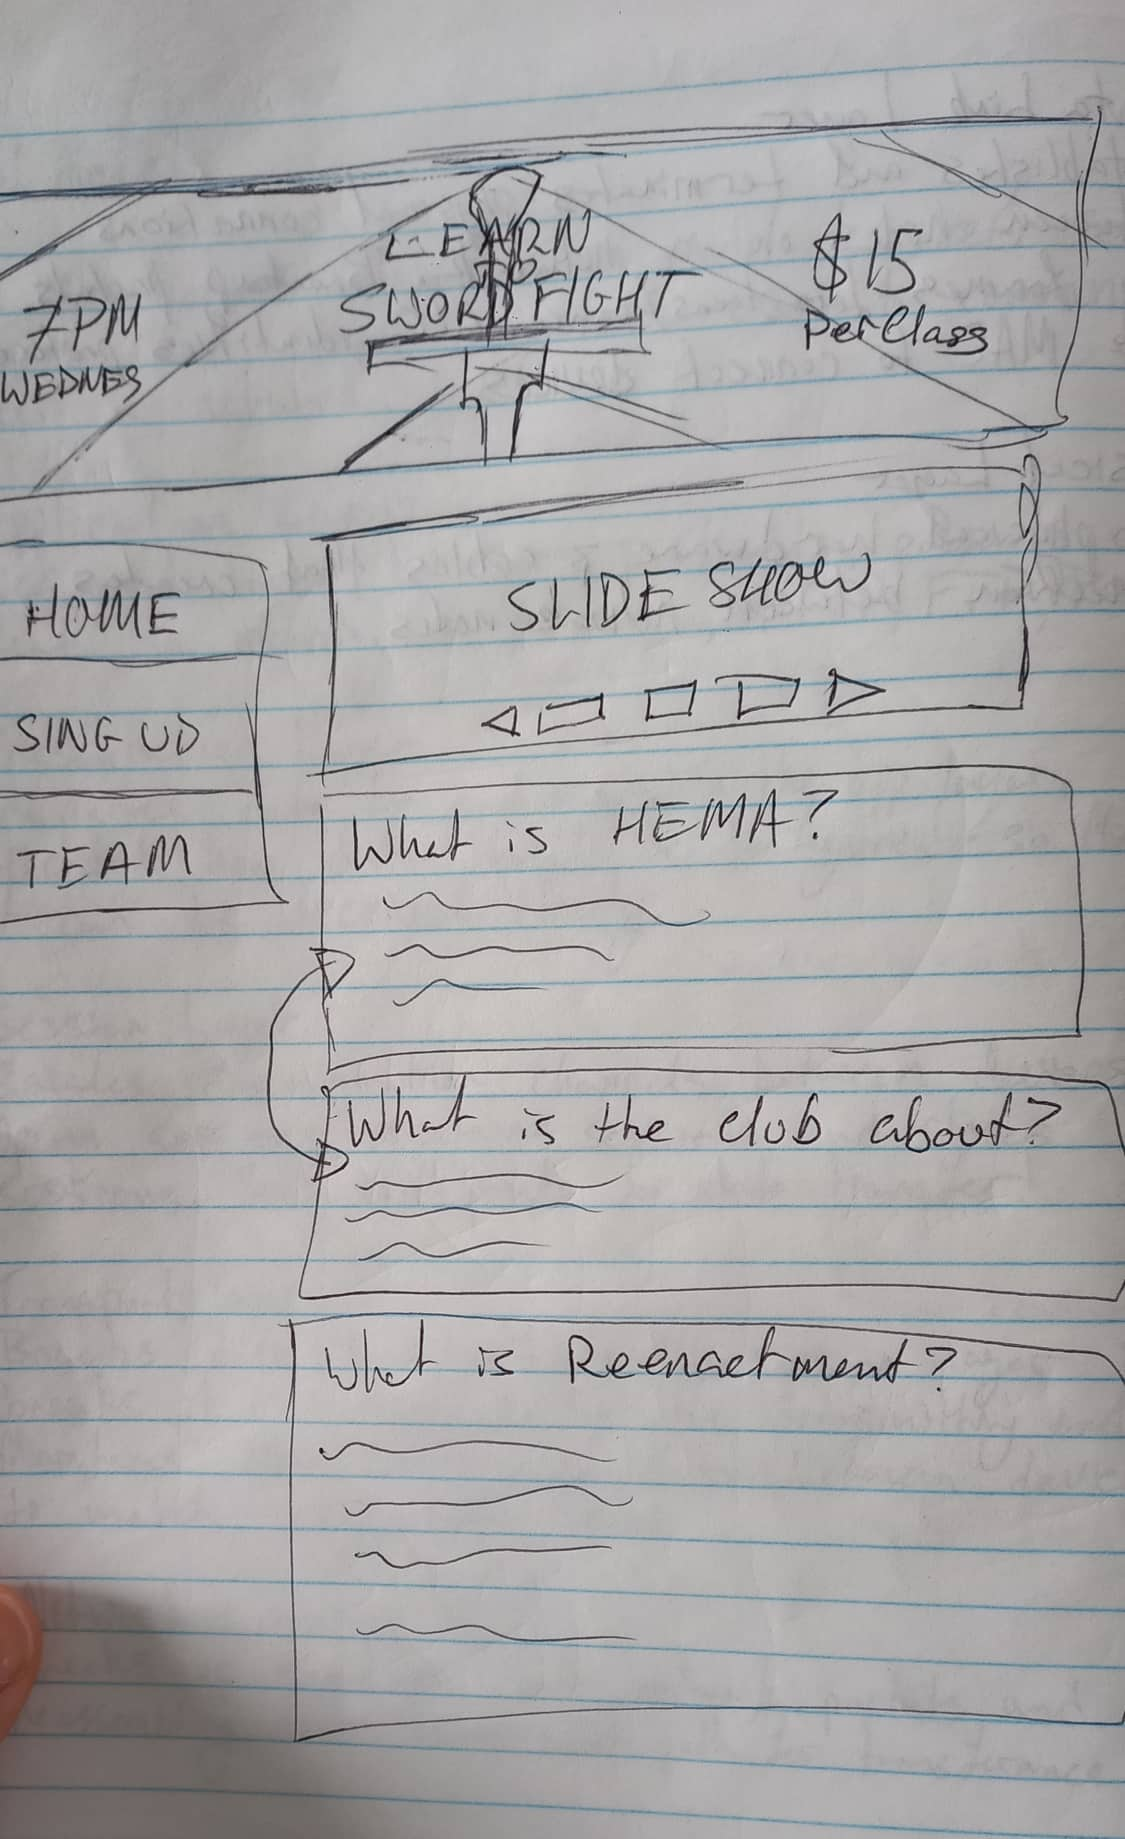 7PM
WEDNES
LEARN
TO
SWORD FIGHT
$15
Per Class
HOME
SING UP
TEAM
SLIDE SHOW
What is HEMA?
What is the club about?
What is Reenactment?